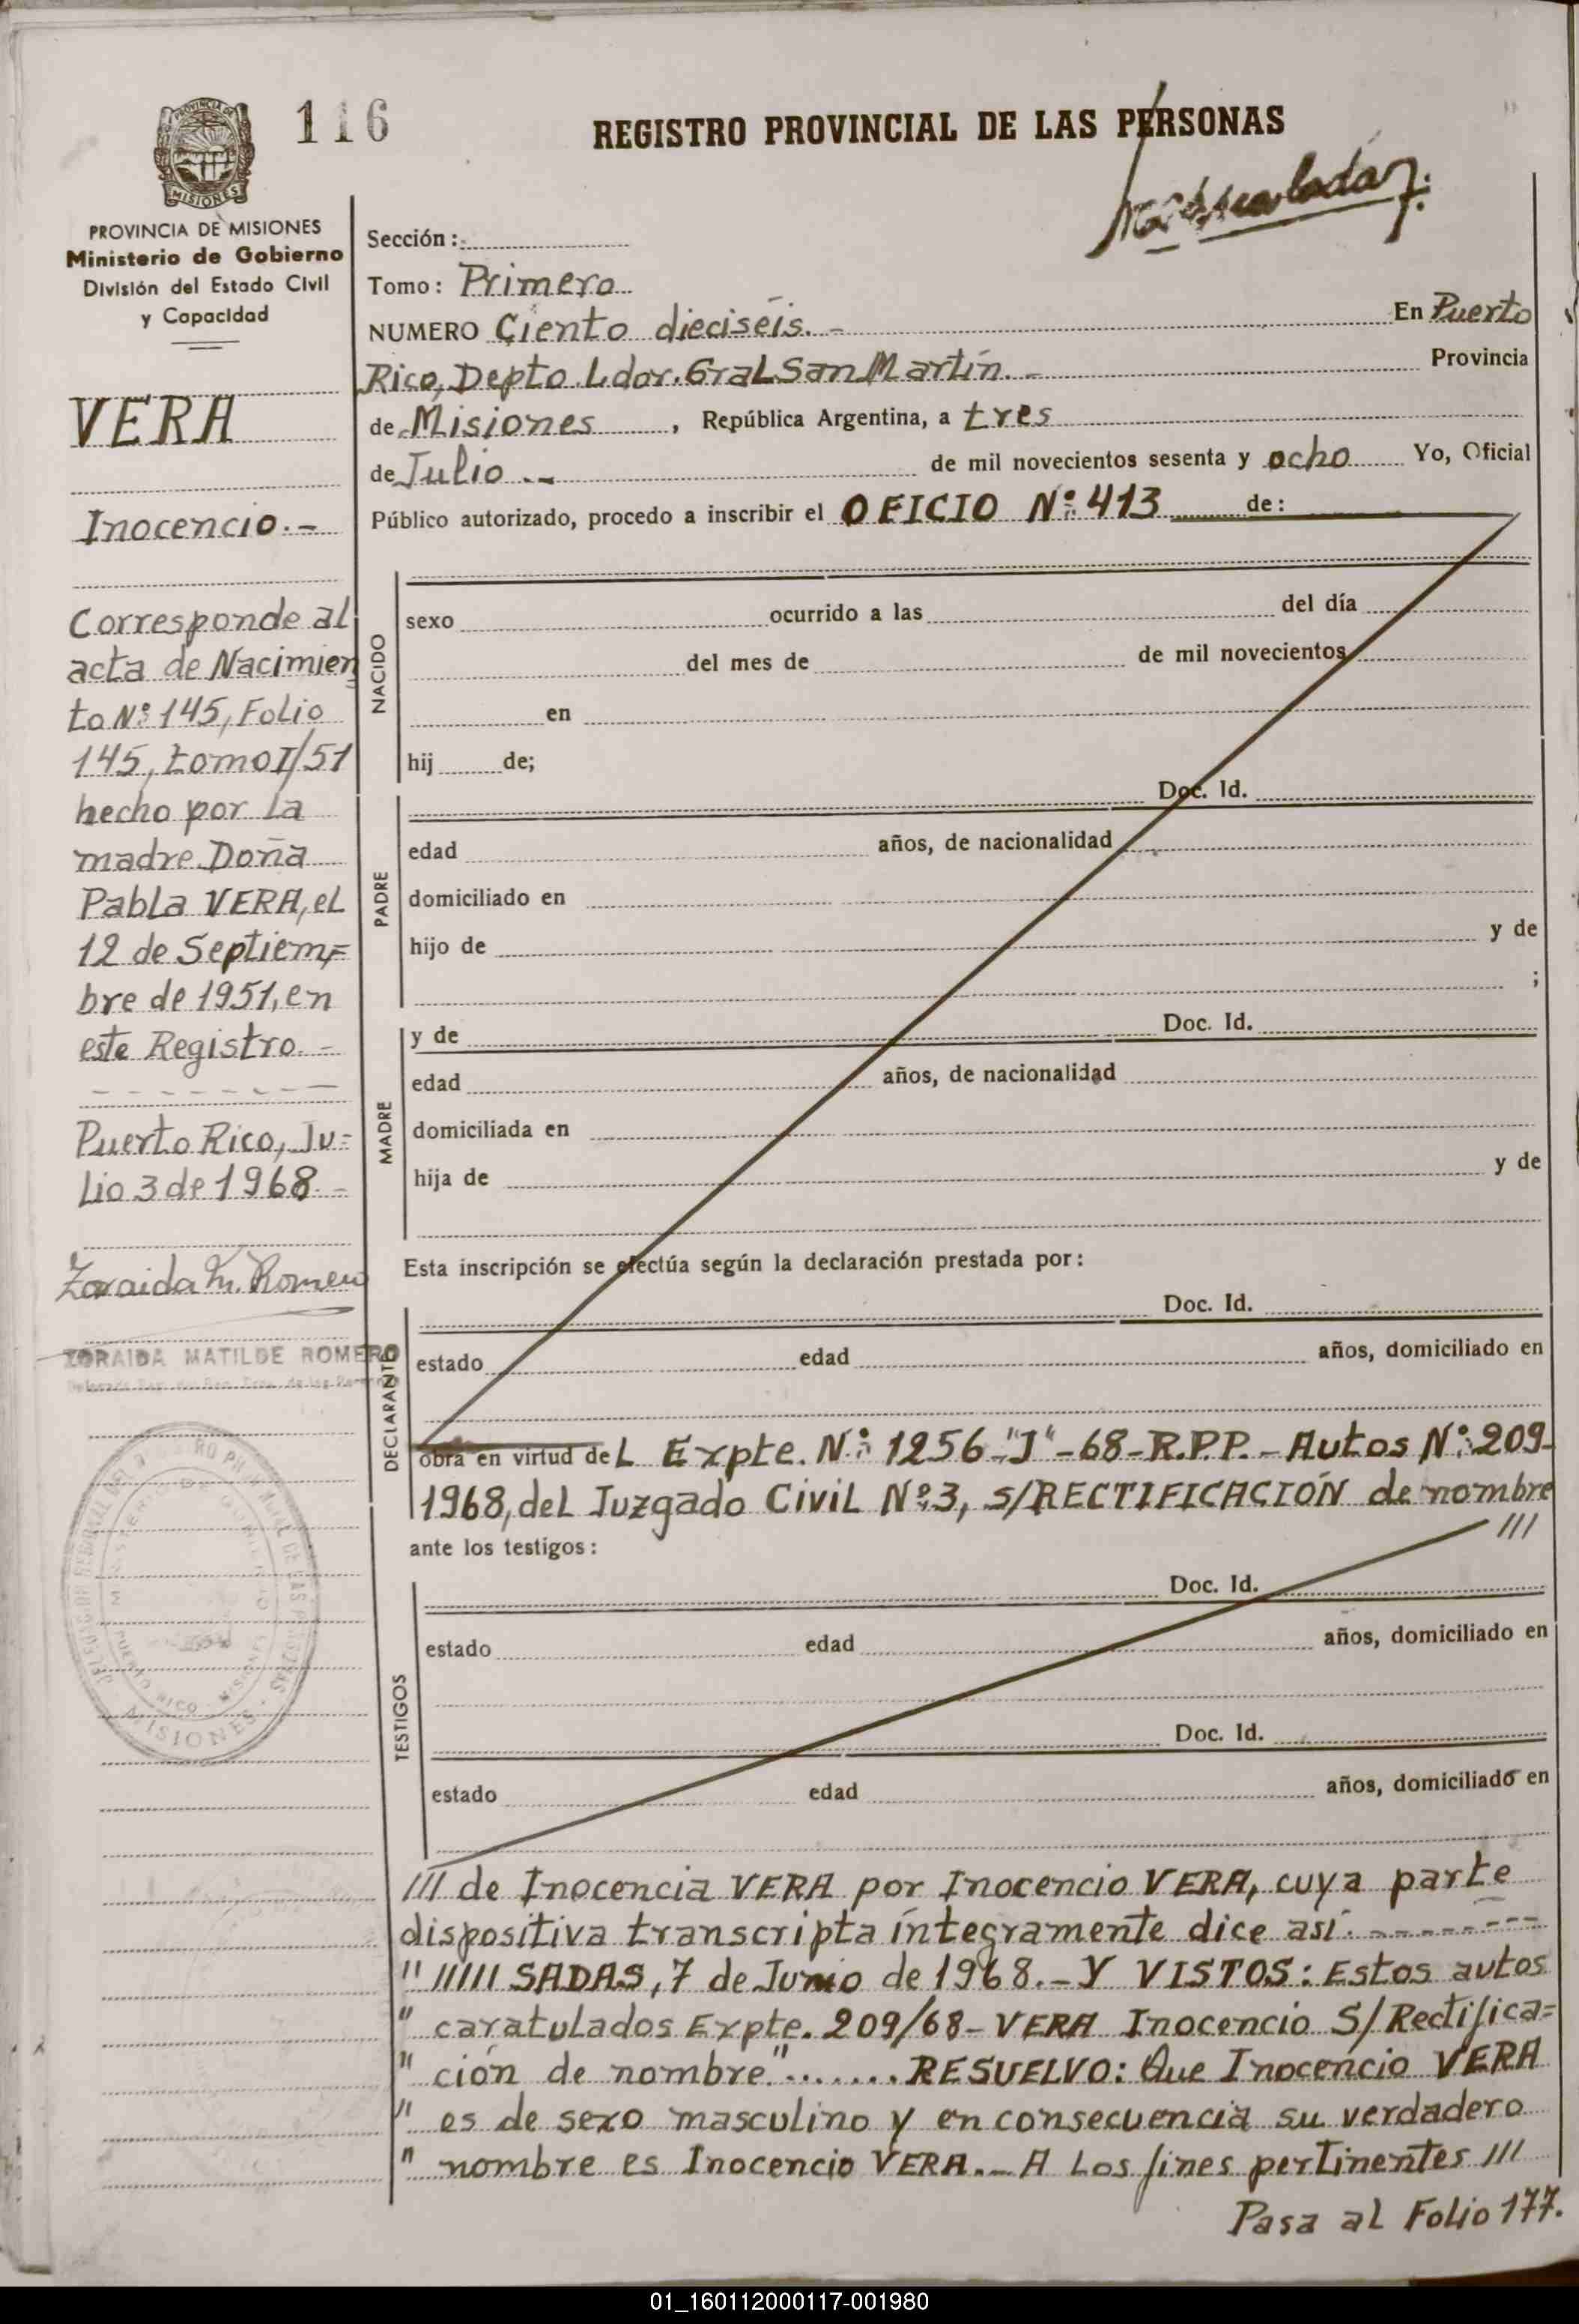 116
REGISTRO PROVINCIAL DE LAS PERSONAS
PROVINCIA DE
MISIONES
PROVINCIA DE MISIONES
Ministerio de Gobierno
División del Estado Civil
y Capacidad
VERA
Inocencio.-
Corresponde al
acta de Nacimien
to Nº 145, Folio
145, tomo I/51
hecho por la
madre Doña
Pabla VERA, el
12 de Septiem=
bre de 1951, en
este Registro.-
Puerto Rico, Ju=
lio 3 de 1968.-
Zoraida M. Romero
ZORAIDA MATILDE ROMERO
MISIONES
Sección:
Tomo: Primero
NUMERO Ciento dieciséis.- En Puerto
Rico, Depto. Ldor. Gral San Martín.- Provincia
de Misiones, República Argentina, a tres
de Julio.-- de mil novecientos sesenta y ocho Yo, Oficial
Público autorizado, procedo a inscribir el OFICIO Nº 413 de:
NACIDO
sexo ocurrido a las del día
del mes de de mil novecientos
en
hij de;
PADRE
Doc. Id.
edad años, de nacionalidad
domiciliado en
hijo de y de
;
MADRE
y de Doc. Id.
edad años, de nacionalidad
domiciliada en
hija de y de
Esta inscripción se efectúa según la declaración prestada por:
DECLARANTE
Doc. Id.
estado edad años, domiciliado en
obra en virtud del Expte. Nº 1256-"J"-68-R.P.P.- Autos Nº 209-
1968, del Juzgado Civil Nº 3, s/RECTIFICACIÓN de nombre
///
ante los testigos:
TESTIGOS
Doc. Id.
estado edad años, domiciliado en
Doc. Id.
estado edad años, domiciliado en
/// de Inocencia VERA por Inocencio VERA, cuya parte
dispositiva transcripta íntegramente dice así.---------
" ///// SADAS, 7 de Junio de 1968.- Y VISTOS: Estos autos
" caratulados Expte. 209/68- VERA Inocencio S/Rectifica=
" ción de nombre"....... RESUELVO: Que Inocencio VERA
" es de sexo masculino y en consecuencia su verdadero
" nombre es Inocencio VERA.- A los fines pertinentes ///
Pasa al Folio 177.
01_160112000117-001980